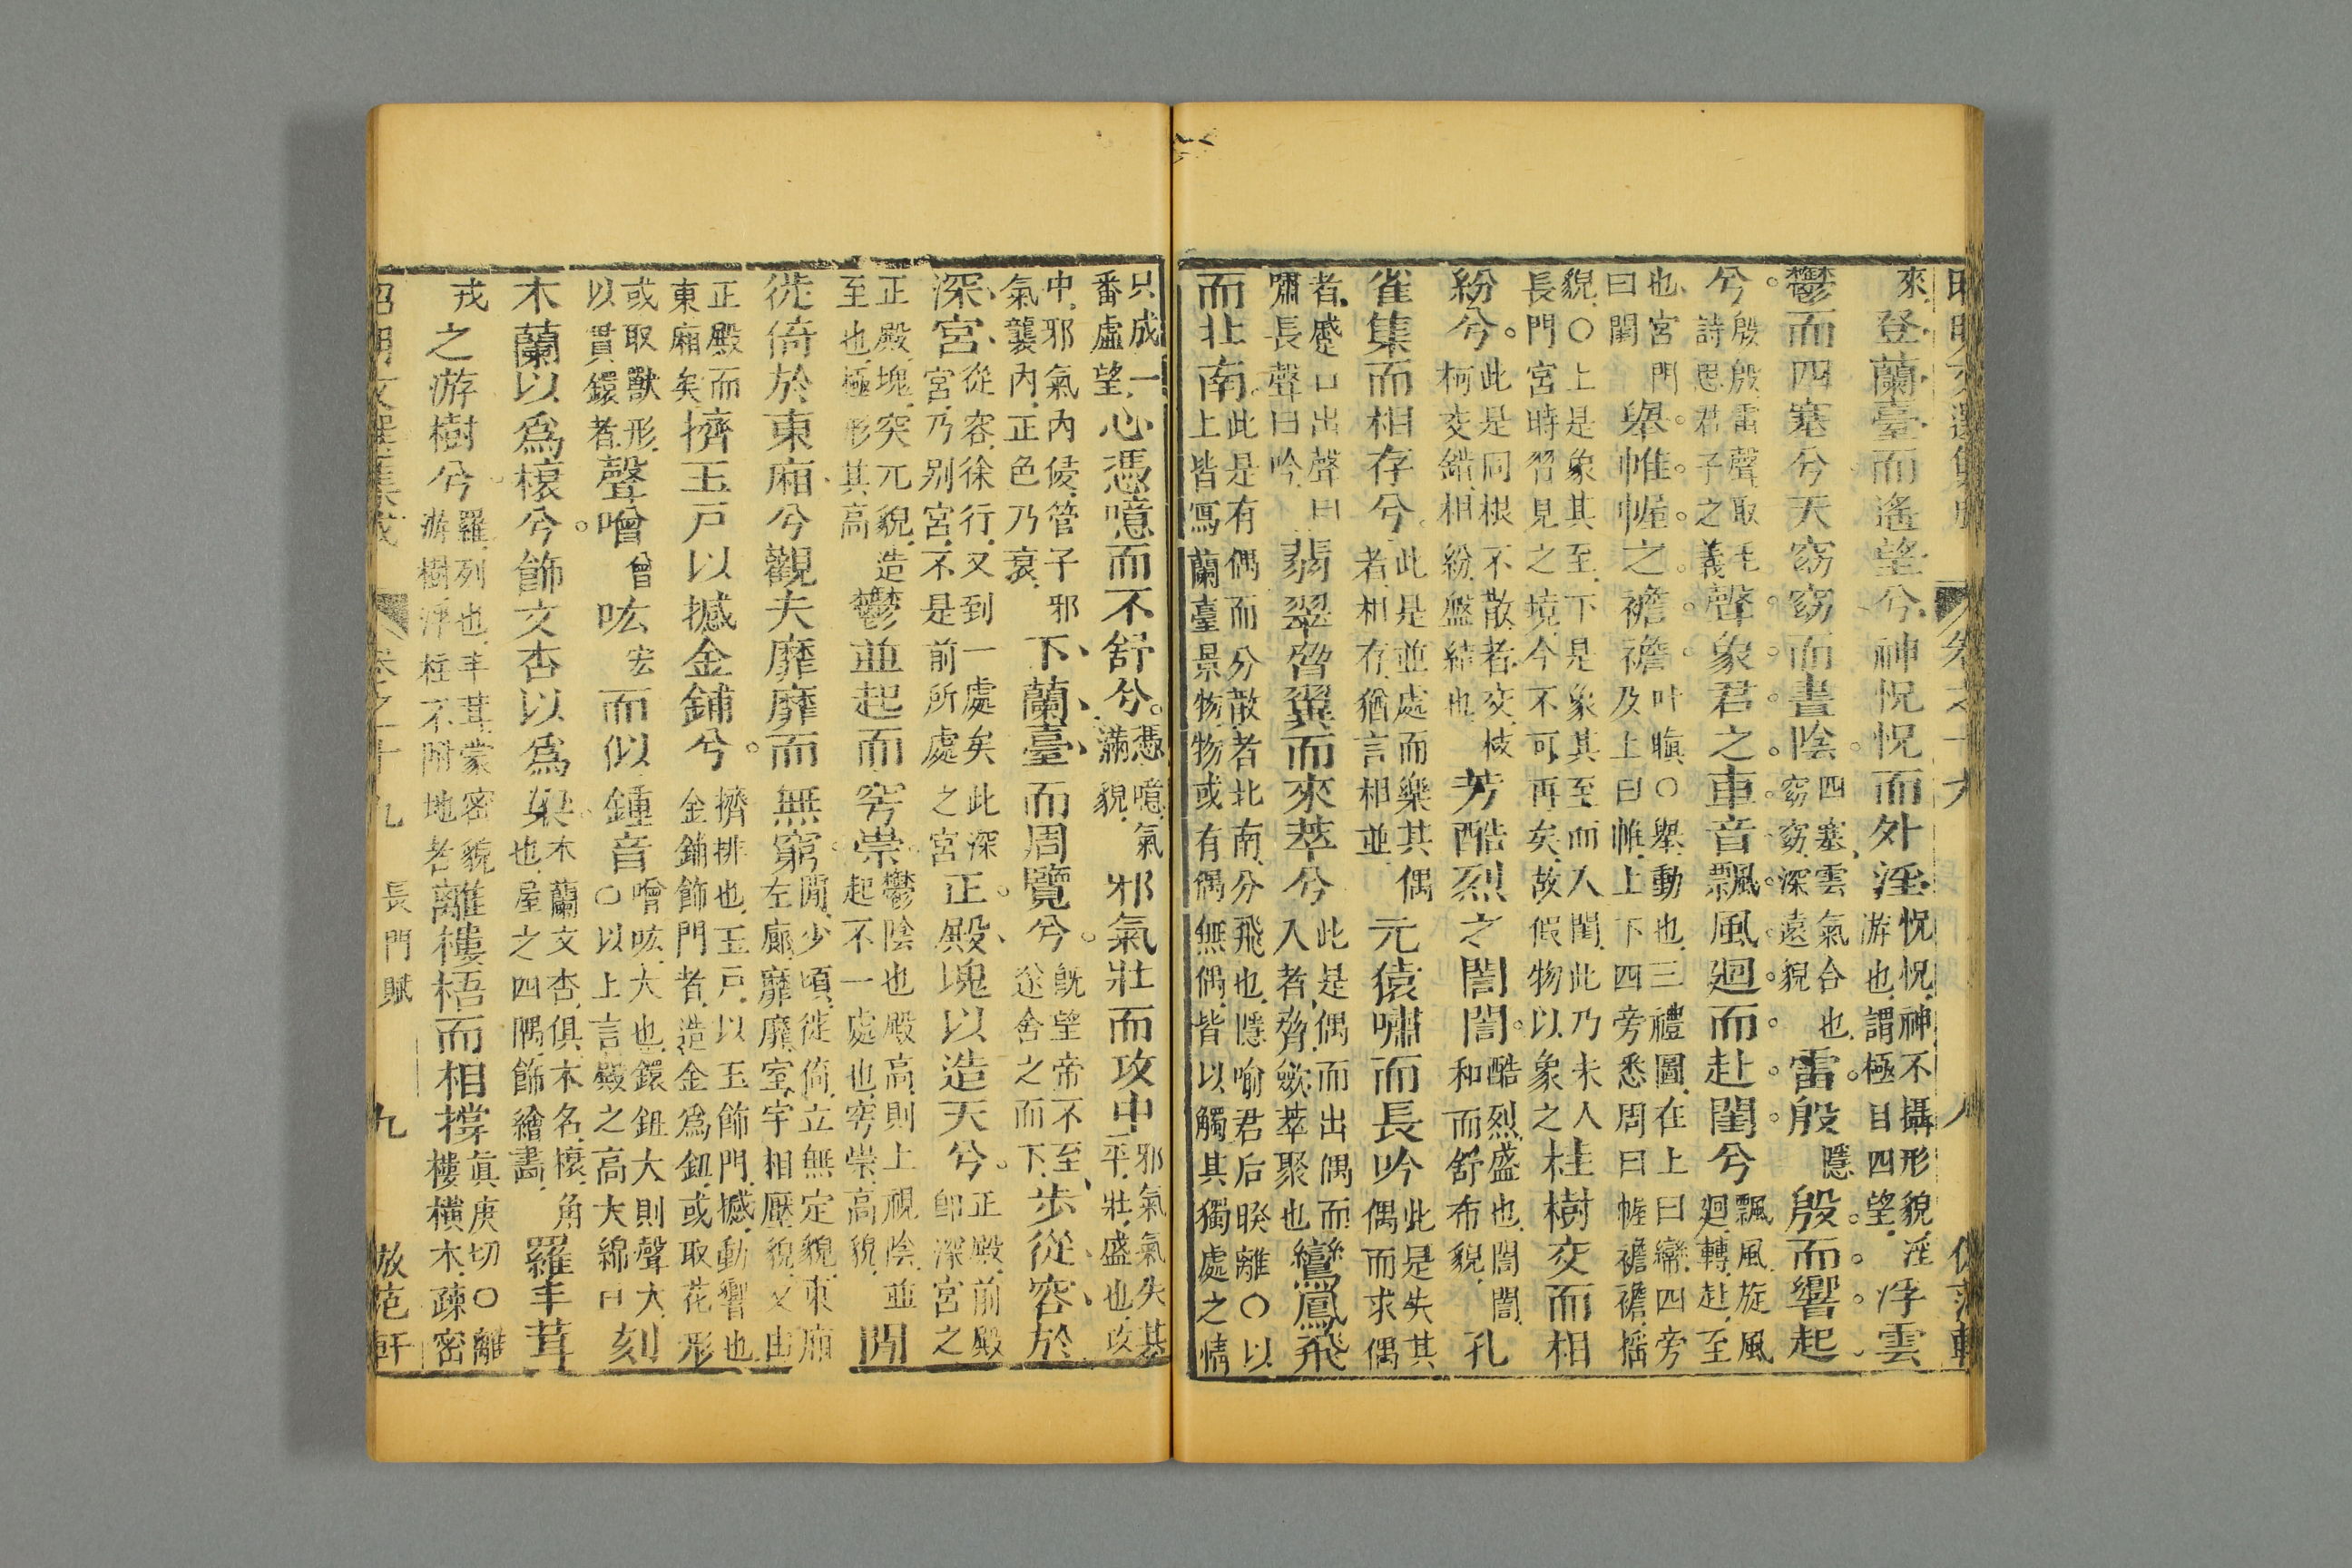 來登蘭臺而遙望兮神怳怳而外淫怳怳神不攝形貌淫游也謂極目四望浮雲
鬱而四塞兮天窈窈而晝陰四塞雲氣合也窈窈深遠貌雷殷隱殷而響起
兮殷殷雷聲取毛詩思君子之義聲象君之車音飄風迴而赴閨兮飄風旋風迴轉赴至
也宮門曰閨舉帷幄之襜襜叶瞋○舉動也三禮圖在上曰帟四旁及上曰帷上下四旁悉周曰幄襜襜搖
貌○上是象其至下是象其至而人閨此乃未人長門宮時習見之境今不可再矣故假物以象之桂樹交而相
紛兮此是同根不散者交枝柯交錯相紛盤結也芳酷烈之誾誾酷烈盛也誾誾和而舒布貌孔
雀集而相存兮此是並處而樂其偶者相存猶言相並元猿嘯而長吟此是失其偶而求偶
者蹙口出聲曰嘯長聲曰吟翡翠脅翼而來萃兮此是偶而出偶而入者脅歛萃聚也鸞鳳飛
而北南此是有偶而分散者北南分飛也隱喻君后暌離○以上皆寫蘭臺景物物或有偶無偶皆以觸其獨處之情
只成一番虛望心憑噫而不舒兮憑噫氣滿貌邪氣壯而攻中邪氣氣失其平壯盛也攻
中邪氣內侵管子邪氣襲內正色乃衰下蘭臺而周覽兮既望帝不至遂舍之而下步從容於
深宮從容徐行又到一處矣此深宮乃別宮不是前所處之宮正殿塊以造天兮正殿前殿卽深宮之
正殿塊突兀貌造至也極形其高鬱並起而穹崇鬱陰也殿高則上視陰並起不一處也穹崇高貌閒
徙倚於東廂兮觀夫靡靡而無窮閒少頃徙倚立無定貌東廂左廊靡靡室宇相壓貌又由
正殿而東廂矣擠玉戶以撼金鋪兮擠排也玉戶以玉飾門撼動響也金鋪飾門者造金爲鈕或取花形
或取獸形以貫鐶者聲噌曾吰宏而似鍾音噌吰大也鐶鈕大則聲大○以上言殿之高大綿日刻
木蘭以爲榱兮飾文杏以爲梁木蘭文杏俱木名榱角也屋之四隅飾繪畫羅丰茸
戎之游樹兮羅列也丰茸蒙密貌游樹浮柱不附地者離樓梧而相撐眞庚切○離樓橫木疎密
昭明文選集成 卷之十九 長門賦 九 倣范軒